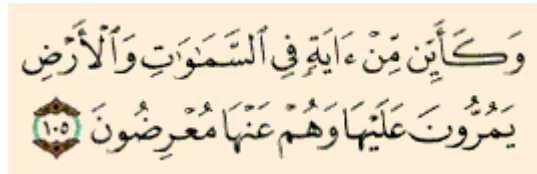 وَكَأَيِّن مِّنْ ءَايَةٍ فِي ٱلسَّمَٰوَٰتِ وَٱلْأَرْضِ
يَمُرُّونَ عَلَيْهَا وَهُمْ عَنْهَا مُعْرِضُونَ ١٠٥